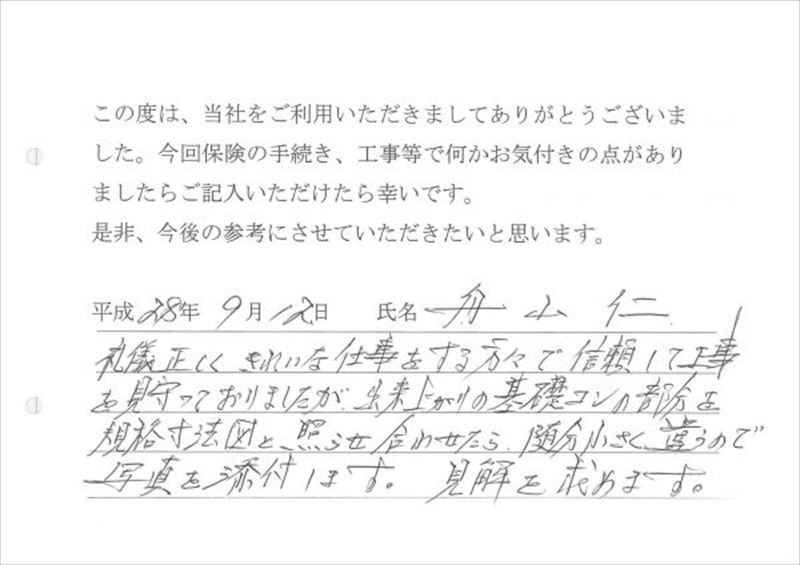 この度は、当社をご利用いただきましてありがとうございま
した。今回保険の手続き、工事等で何かお気付きの点があり
ましたらご記入いただけたら幸いです。
是非、今後の参考にさせていただきたいと思います。
平成28年 9月12日 氏名 舟山 仁
礼儀正しくきれいな仕事をする方々で信頼して工事
を見守っておりましたが、出来上がりの基礎コンの部分を
規格寸法図と、照らせ合わせたら、随分小さく違うので
写真を添付します。 見解を求めます。